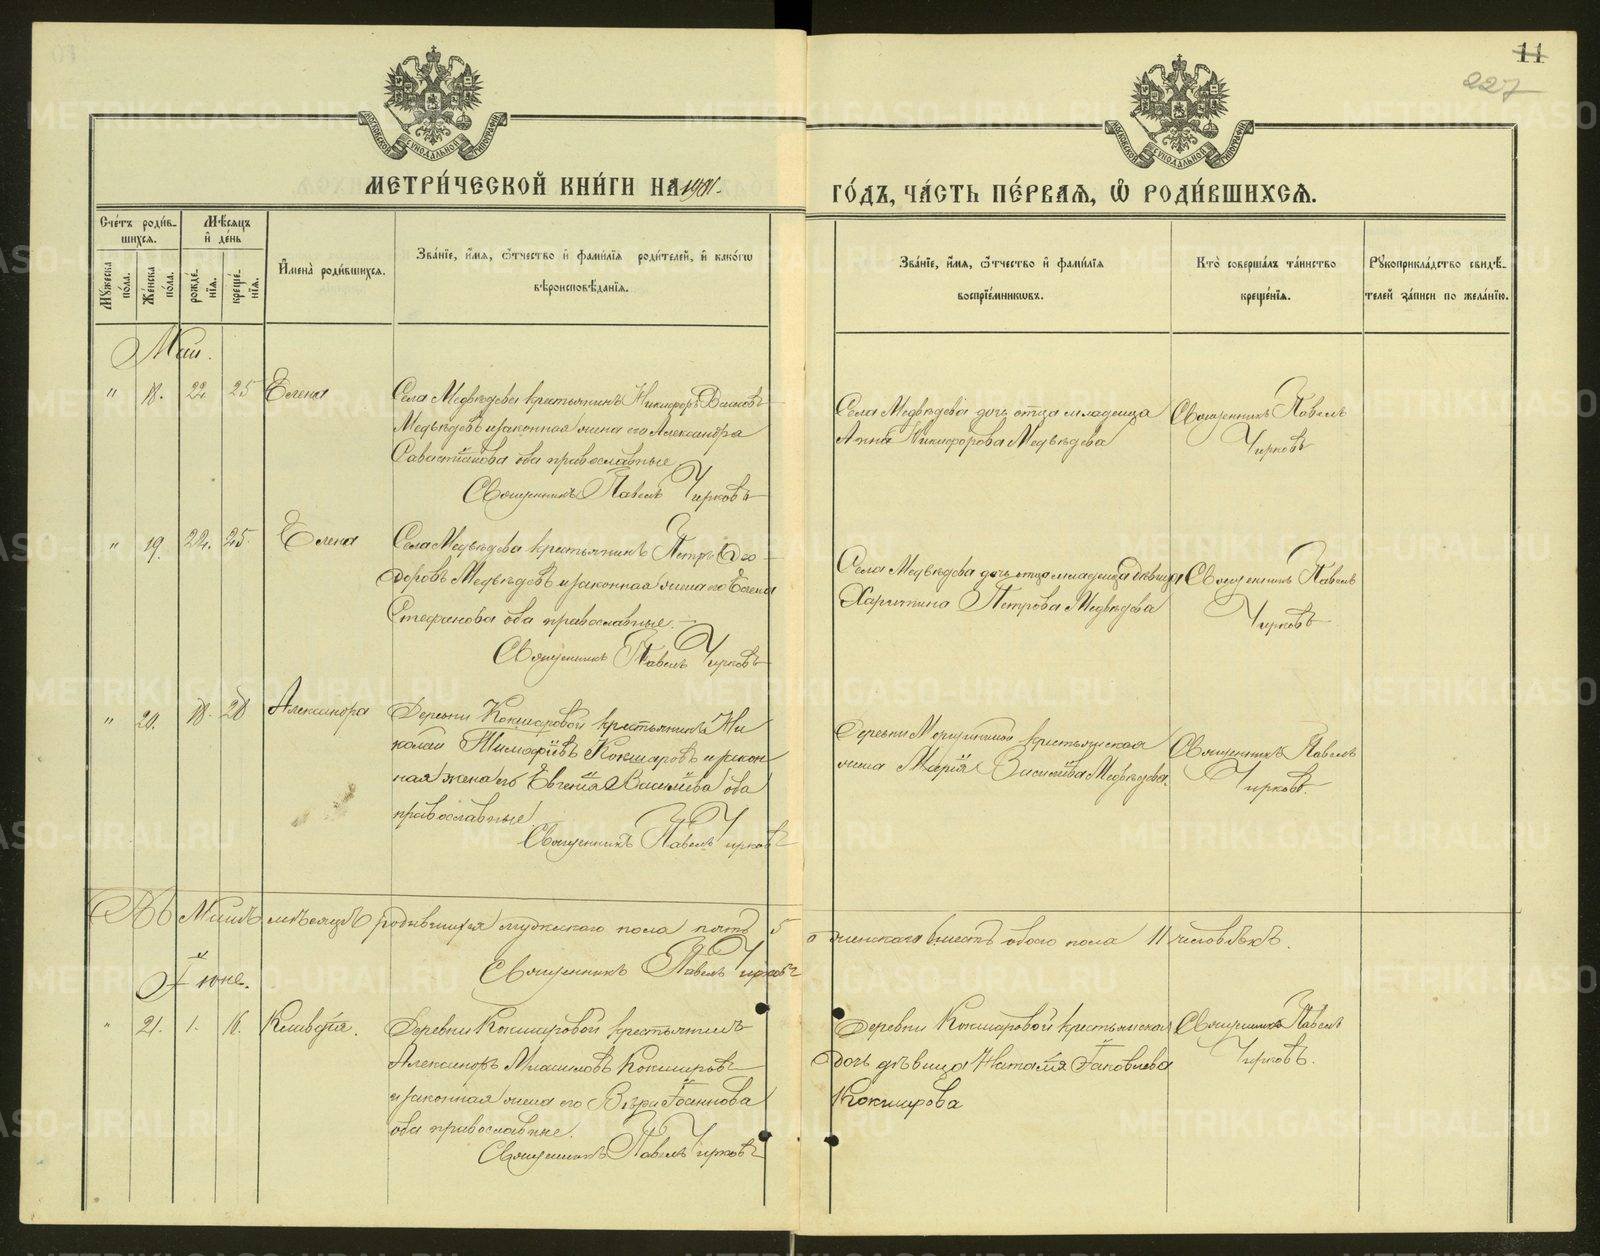 11
227
МОСКОВСКОЙ СУНОДАЛЬНОЙ ТИПОГРАФІИ
МОСКОВСКОЙ СУНОДАЛЬНОЙ ТИПОГРАФІИ
МЕТРИ́ЧЕСКОЙ КНИ́ГИ НА
ГО́ДЪ, ЧА́СТЬ ПЕ́РВАЯ, Ѡ РОДИ́ВШИХСЯ.
Сче́тъ роди́в-
шихся.
Мѣ́сяцъ
и де́нь
Му́жеска по́ла.
Же́нска по́ла.
рожде́нія.
креще́нія.
Имена̀ роди́вшихся.
Зва́ніе, и́мя, ѻ́тчество и фами́лія роди́телей, и како́гѡ
вѣроисповѣ́данія.
Зва́ніе, и́мя, ѻ́тчество и фами́лія
воспріе́мникѡвъ.
Кто̀ соверша́лъ та́инство
креще́нія.
Рꙋкоприкла́дство свидѣ́-
телей за́писи по жела́нію.
Маи.
" 18. 22. 25 Елена
Села Медвѣдева крестьянинъ Никифоръ
Медвѣдевъ и законная жена его Александра
Савастіянова оба православные
Священникъ Павелъ Чирковъ
Села Медвѣдева дочь отца младенца
Анна Никифорова Медвѣдева
Священникъ Павелъ
Чирковъ
" 19. 22. 25. Елена
Села Медвѣдева крестьянинъ Петръ Ѳео-
доровъ Медвѣдевъ и законная жена его Елена
Стефанова оба православные.
Священникъ Павелъ Чирковъ
Села Медвѣдева дочь отца младенца дѣвица
Харитина Петрова Медвѣдева
Священникъ Павелъ
Чирковъ
" 20. 18. 28 Александра
Деревни Кокшаровой крестьянинъ Ни
колай Тимофіевъ Кокшаровъ и закон
ная жена его Евгенія Василіева оба
православные
Священникъ Павелъ Чирковъ
Деревни крестьянская
жена Марія Василіева Медвѣдева.
Священникъ Павелъ
Чирковъ.
Въ Маѣ мѣсяцѣ родившихся мужескаго пола пять 5
женскаго вмѣстѣ обоего пола 11 человѣкъ.
Священникъ Павелъ Чирковъ
Іюне.
" 21. 1. 16. Клавдія.
Деревни Кокшаровой крестьянинъ
Александръ Кокшаровъ
и законная жена его Вѣра Іоаннова
оба православные.
Священникъ Павелъ Чирковъ
Деревни Кокшаровой крестьянская
дочь дѣвица Наталія Іаковлева
Кокшарова
Священникъ Павелъ
Чирковъ.
METRIKI.GASO-URAL.RU